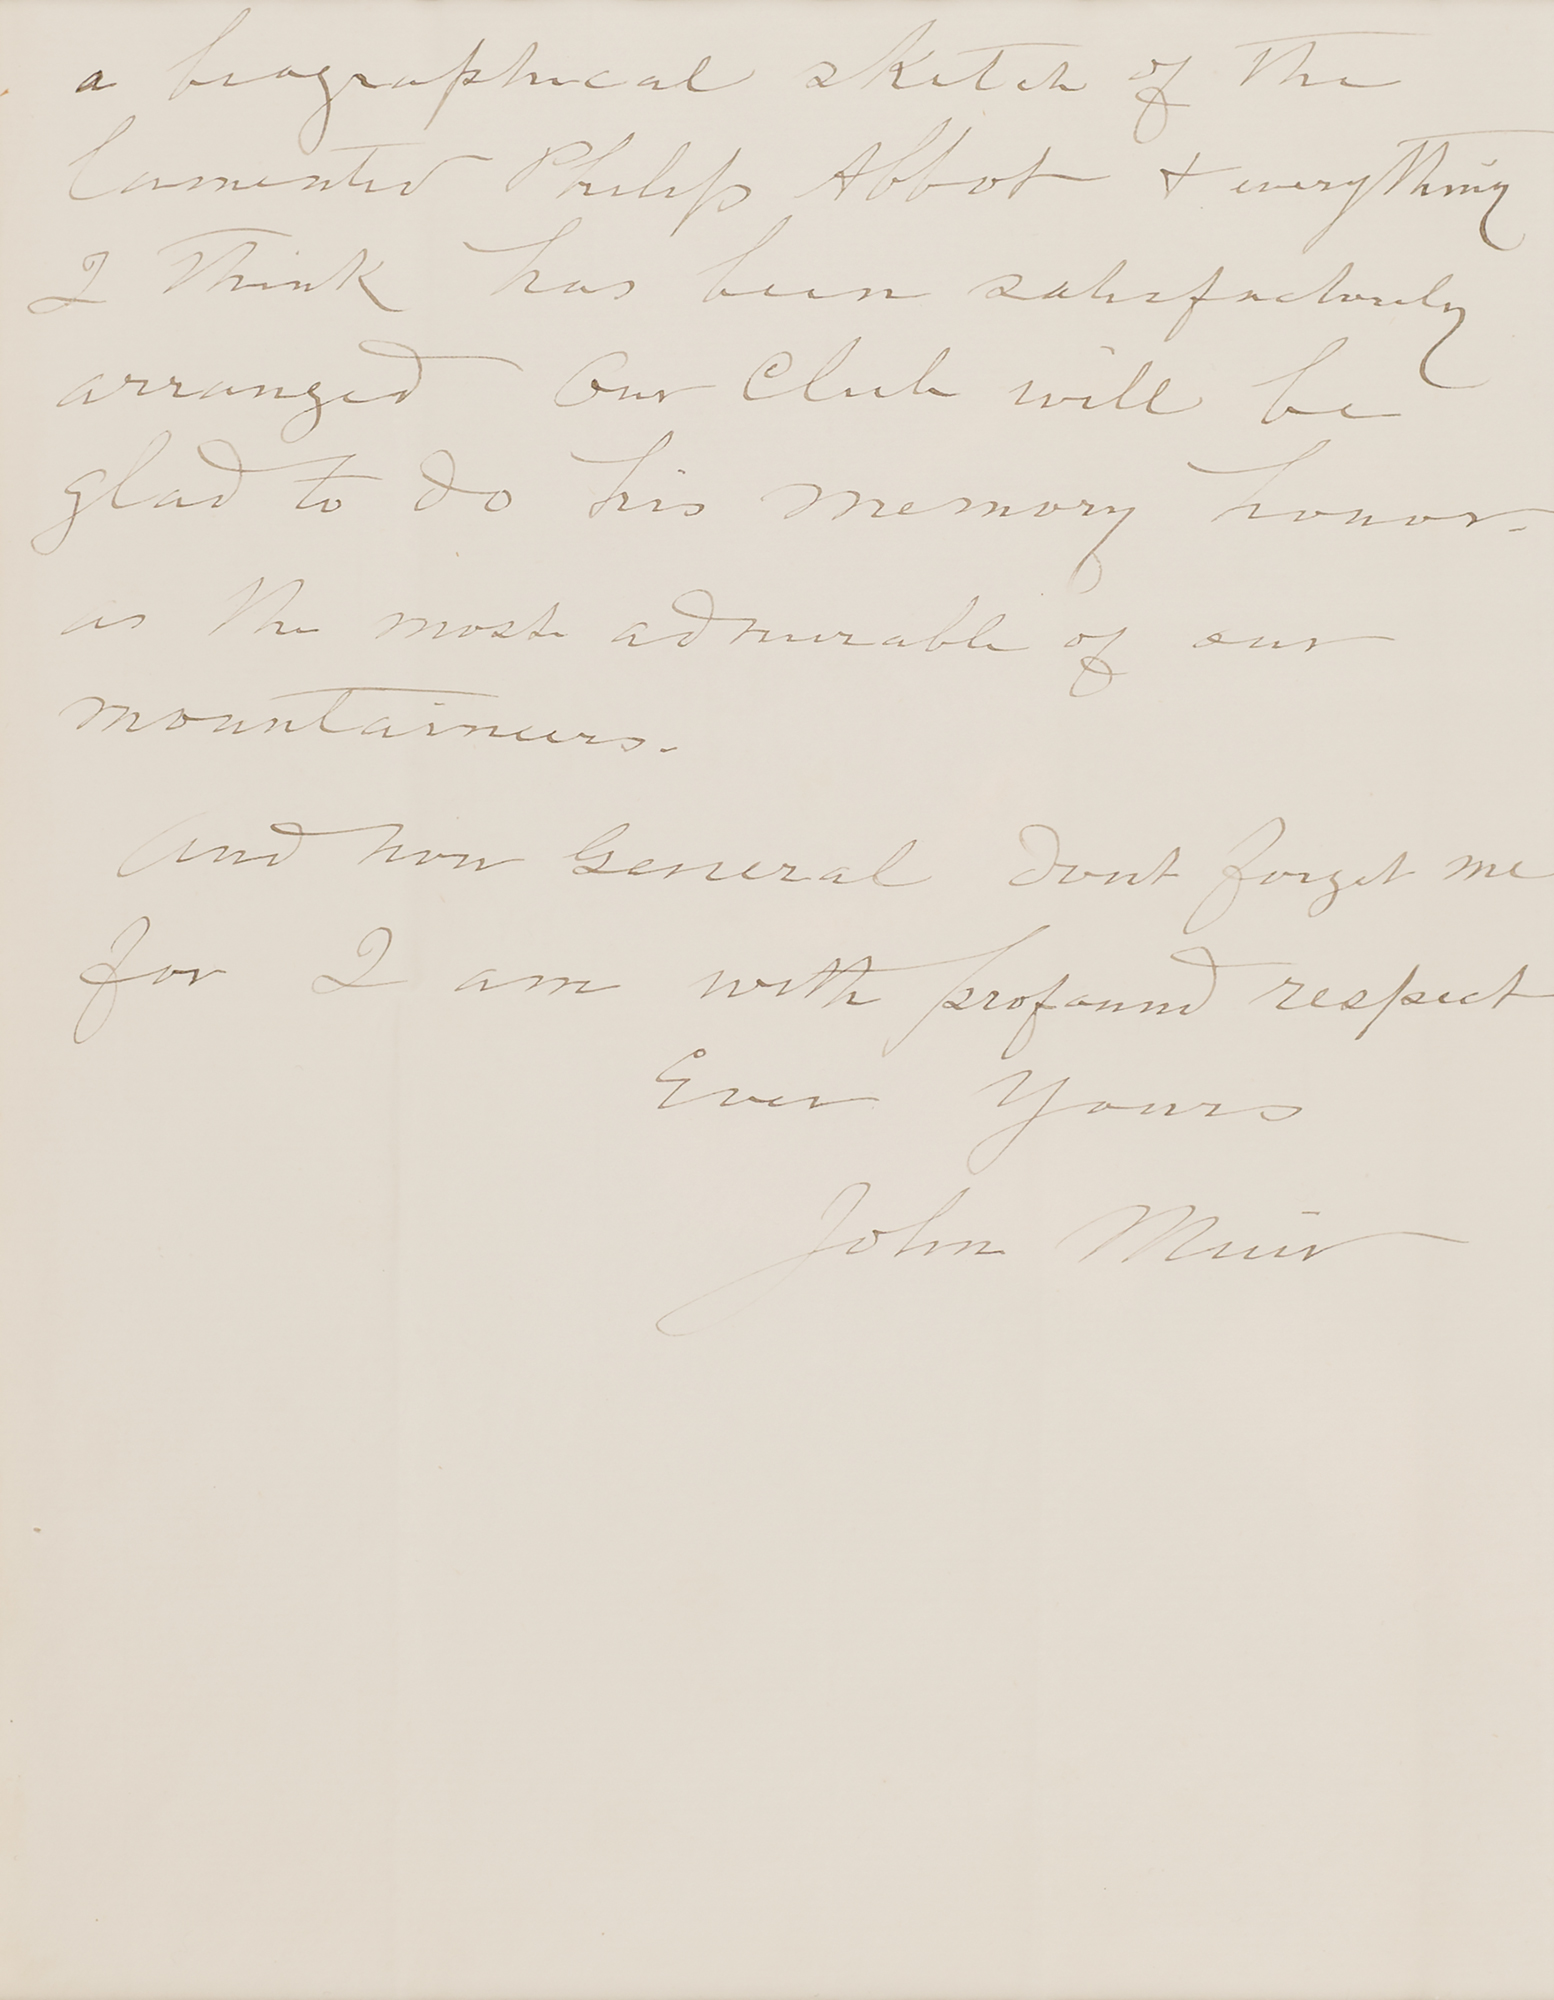 a biographical sketch of the
lamented Philip Abbot & everything
I think has been satisfactorily
arranged Our Club will be
glad to do his memory honor.
as the most admirable of our
mountaineers.
And now General dont forget me
for I am with profound respect
Ever Yours
John Muir